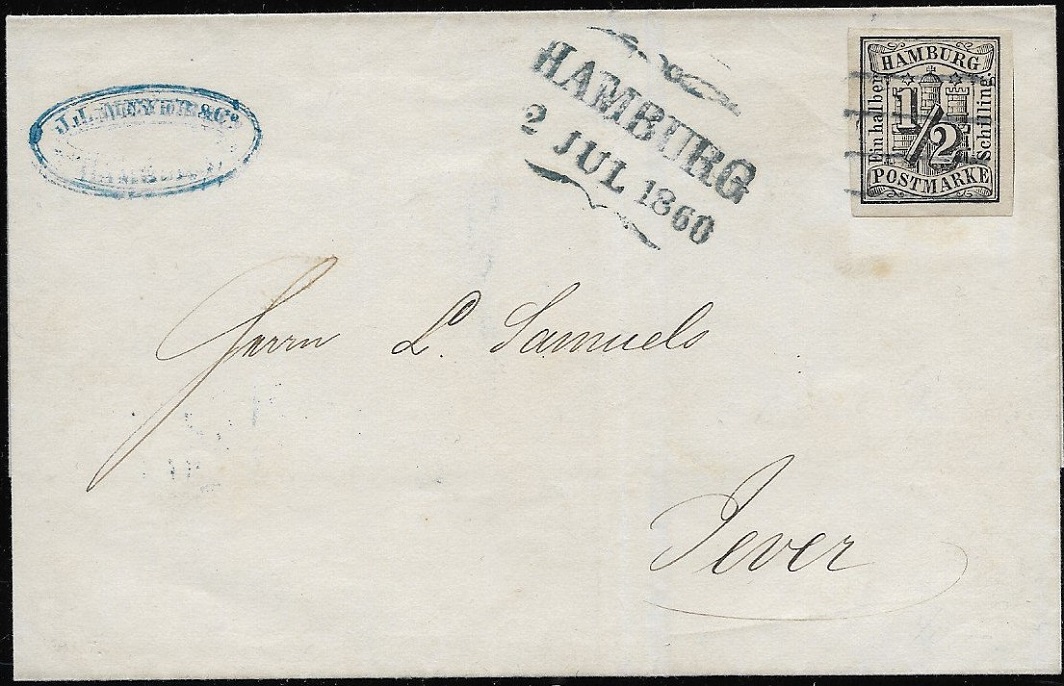 & Co.
HAMBURG
HAMBURG
2 JUL 1860
HAMBURG
Ein halber
1/2
Schilling.
POSTMARKE
Herrn L. Samuels
Jever